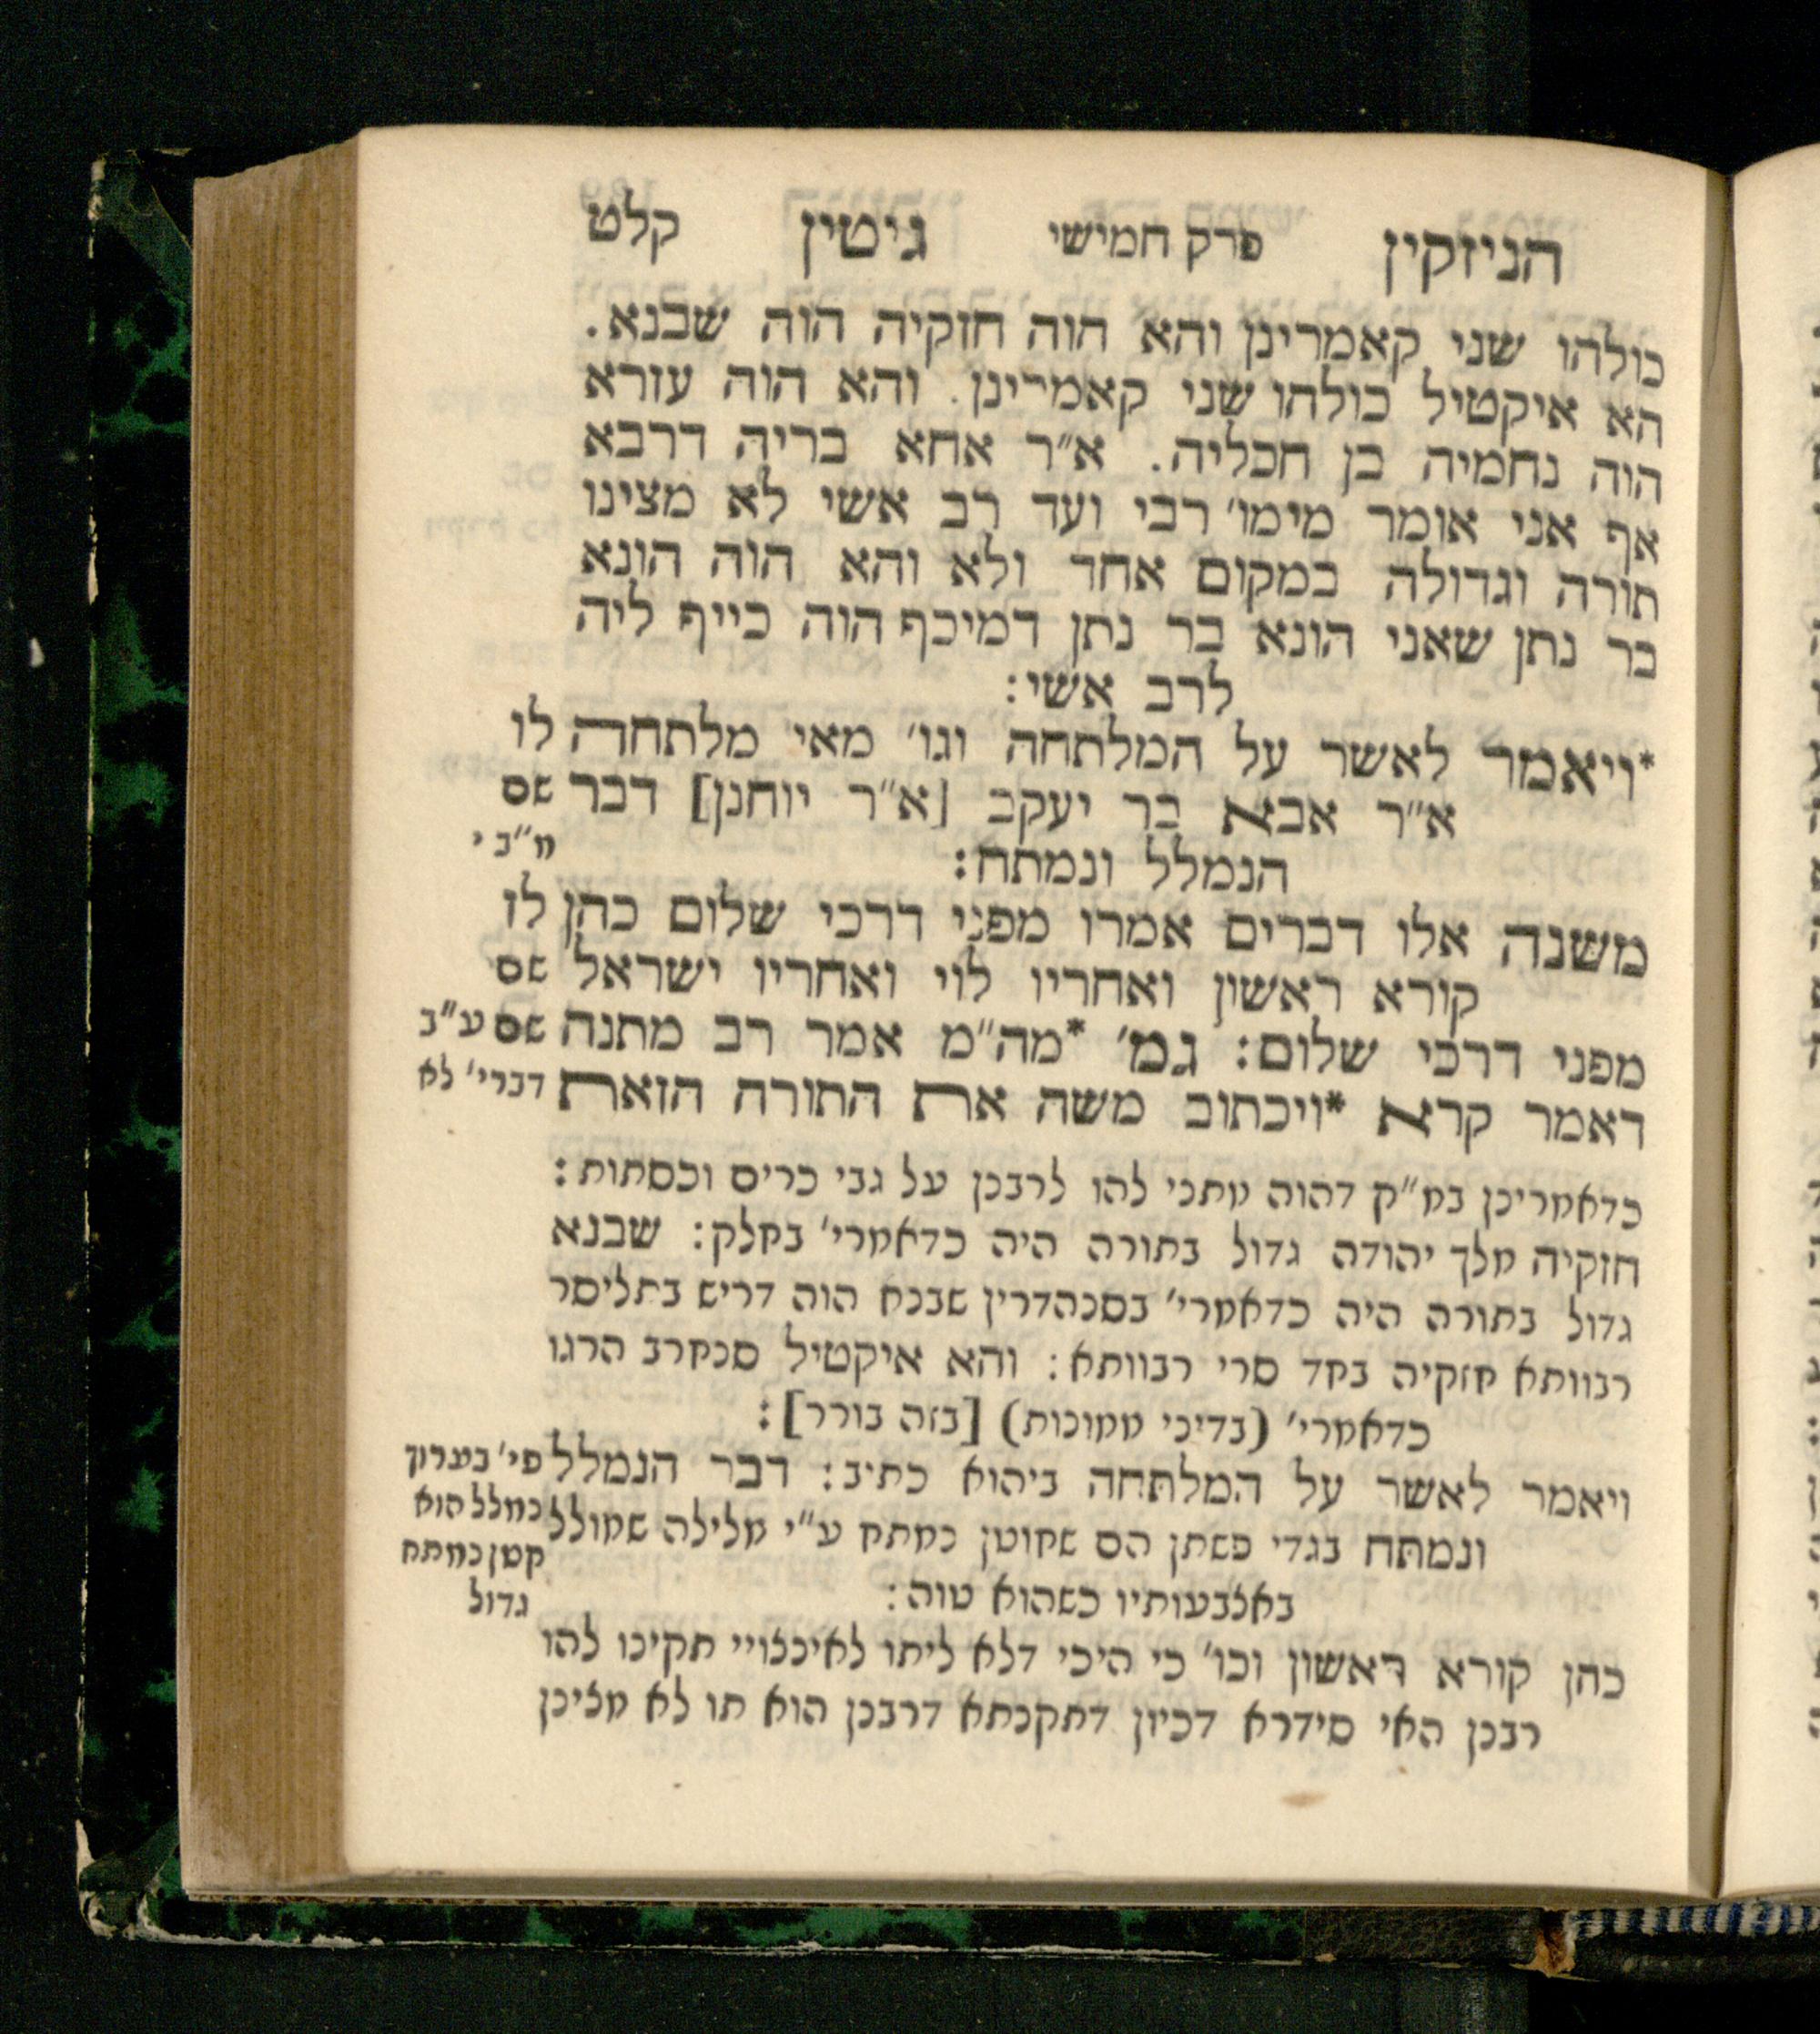 הניזקין פרק חמישי גיטין קלט
כולהו שני קאמרינן והא הוה חזקיה הוה שבנא.
הא איקטיל כולהו שני קאמרינן. והא הוה עזרא
הוה נחמיה בן חכליה. א״ר אחא בריה דרבא
אף אני אומר מימו׳ רבי ועד רב אשי לא מצינו
תורה וגדולה במקום אחד ולא והא הוה הונא
בר נתן שאני הונא בר נתן דמיכף הוה כייף ליה
לרב אשי:
*ויאמר לאשר על המלתחה וגו׳ מאי מלתחה לו
א״ר אבא בר יעקב [א״ר יוחנן] דבר שם
הנמלל ונמתח: מ״ב י
משנה אלו דברים אמרו מפני דרכי שלום כהן לז
קורא ראשון ואחריו לוי ואחריו ישראל שם
מפני דרכי שלום: גמ׳ *מה״מ אמר רב מתנה שם ע״ב
דאמר קרא *ויכתוב משה את התורה הזאת דברי׳ לא
כדאמרינן במ״ק דהוה מתני להו לרבנן על גבי כרים וכסתות:
חזקיה מלך יהודה גדול בתורה היה כדאמרי׳ בחלק: שבנא
גדול בתורה היה כדאמרי׳ בסנהדרין שבנא הוה דריש בתליסר
רבוותא חזקיה בחד סרי רבוותא: והא איקטיל סנחרב הרגו
כדאמרי׳ (בדיני ממונות) [בזה בורר]:
ויאמר לאשר על המלתחה ביהוא כתיב: דבר הנמלל פי׳ בערוך
ונמתח בגדי פשתן הם שחוטן נמתח ע״י מלילה שמולל נמלל הוא
קטן נמתח
באצבעותיו כשהוא טוה: גדול
כהן קורא ראשון וכו׳ כי היכי דלא ליתו לאינצויי תקינו להו
רבנן האי סידרא דכיון דתקנתא דרבנן הוא תו לא מצינן